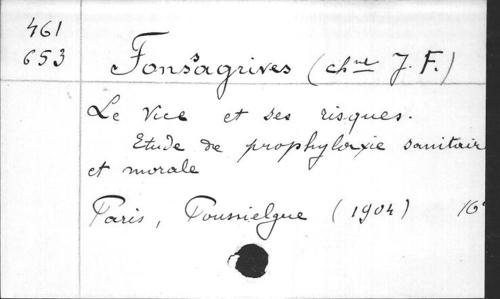 461
653
Fonssagrives (chne J. F.)
Le Vice et ses risques.
Etude de prophylaxie sanitair
et morale
Paris, Poussielgue (1904) 16°